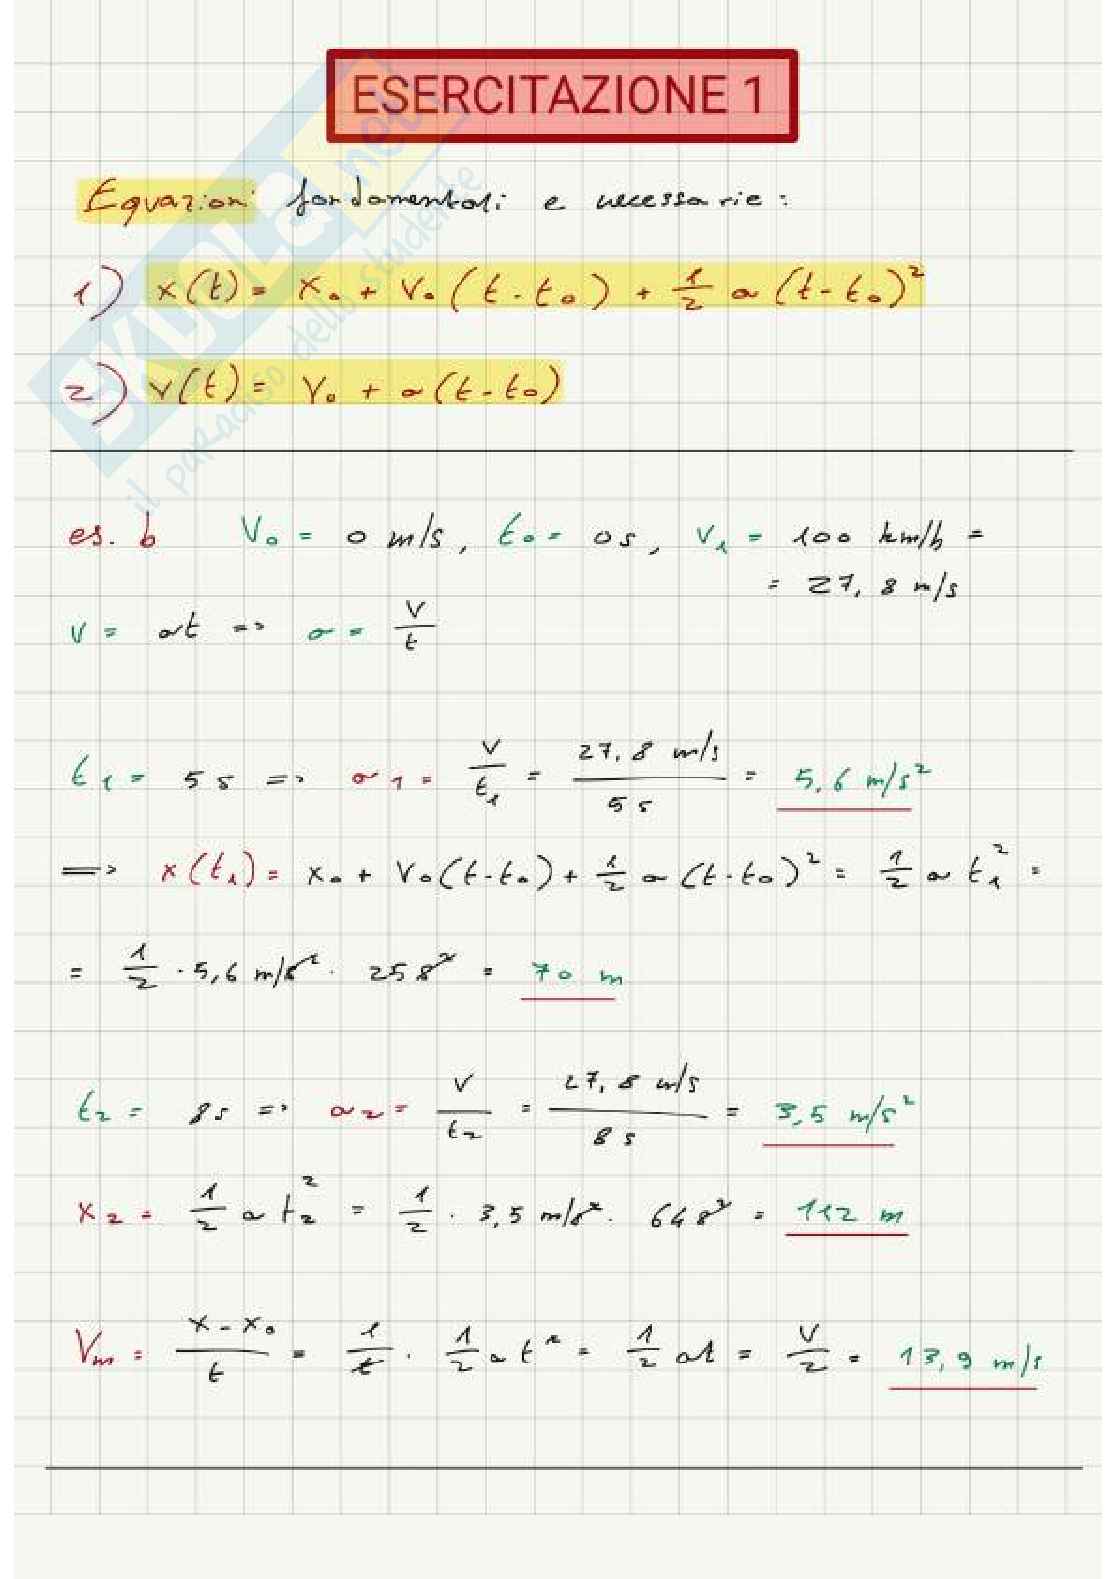 ESERCITAZIONE 1
Equazioni fondamentali e necessarie:
1) x(t) = x₀ + v₀(t-t₀) + 1/2 a (t-t₀)²
2) v(t) = v₀ + a(t-t₀)
SKUOLA.net
il paradiso dello studente
es. b V₀ = 0 m/s, t₀= 0s, v₁ = 100 km/h =
= 27,8 m/s
v = at => a = v/t
t₁ = 5s => a₁ = v/t₁ = 27,8 m/s / 5s = 5,6 m/s²
=> x(t₁) = x₀ + v₀(t-t₀) + 1/2 a (t-t₀)² = 1/2 a t₁² =
= 1/2 · 5,6 m/s² · 25s² = 70 m
t₂ = 8s => a₂ = v/t₂ = 27,8 m/s / 8s = 3,5 m/s²
x₂ = 1/2 a t₂² = 1/2 · 3,5 m/s² · 64s² = 112 m
Vm = x-x₀/t = 1/t · 1/2 a t² = 1/2 at = v/2 = 13,9 m/s